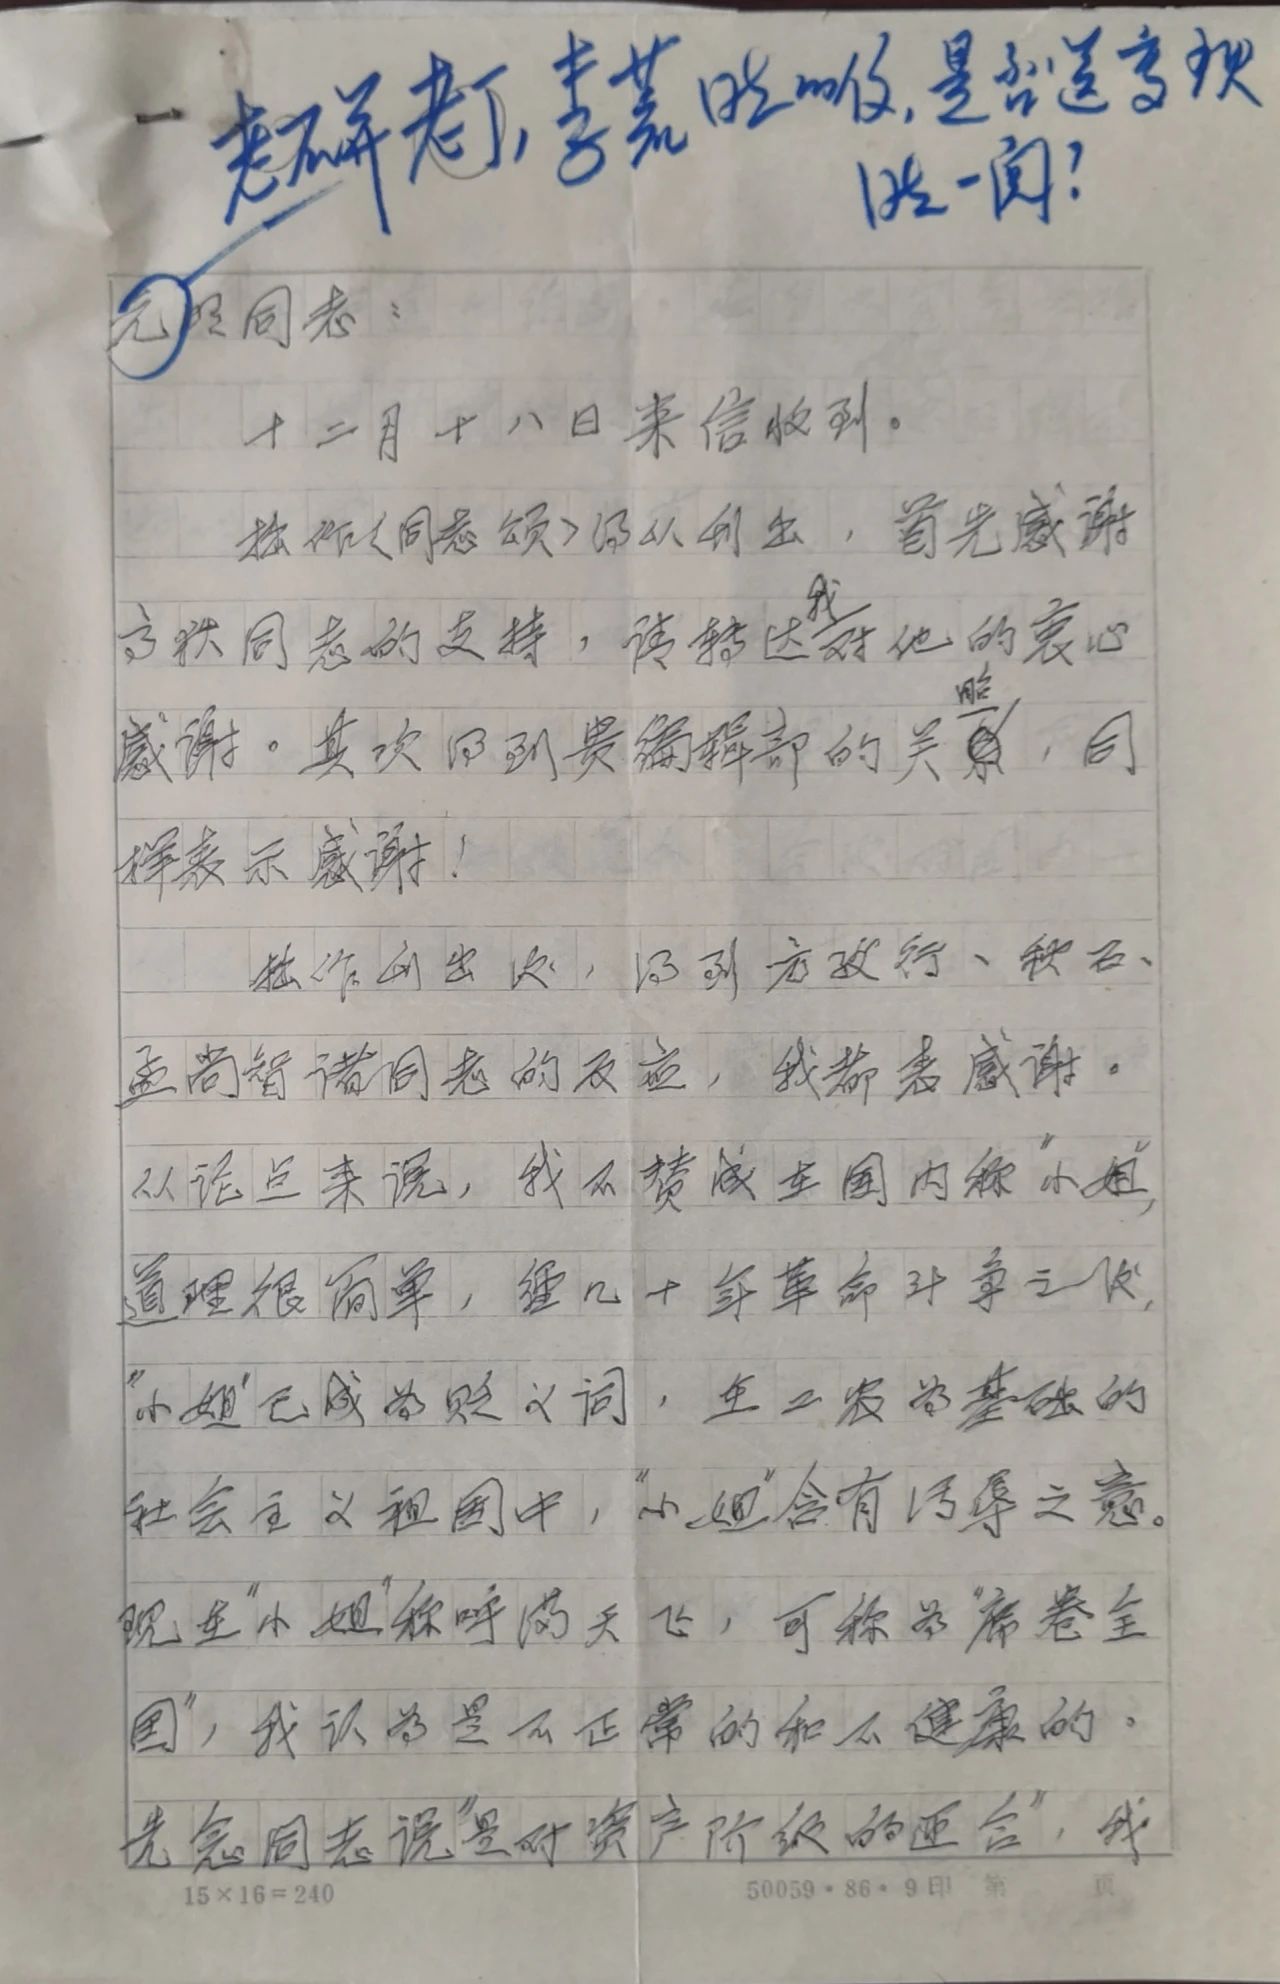 老丁,李荒 的信,是否送高狄
一阅?
元明同志:
十二月十八日来信收到。
拙作〈同志颂〉得以刊出,首先感谢
高狄同志的支持,请转达我对他的衷心
感谢。其次得到贵编辑部的关照,同
样表示感谢!
拙作刊出后,得到 行、秋石、
孟尚智诸同志的反应,我都表感谢。
从论点来说,我不赞成在国内称"小姐",
道理很简单,经几十年革命斗争之后,
"小姐"已成为贬义词,在工农为基础的
社会主义祖国中,"小姐"含有污辱之意。
现在"小姐"称呼满天飞,可称为"席卷全
国",我认为是不正常的和不健康的。
先念同志说"是对资产阶级的迎合",我
15×16=240
50059·86·9印 第 页